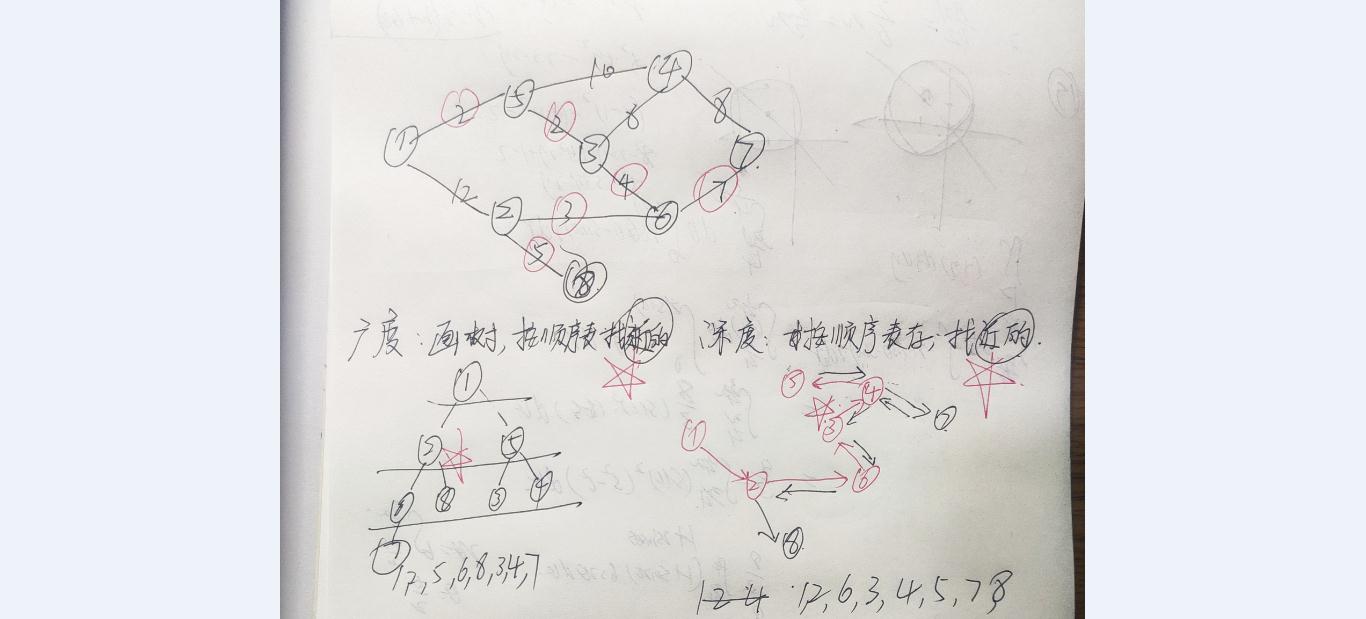 10
4
5
2
2
6
8
1
3
7
4
7
12
2
3
6
5
8
广度：画树，按顺序表找近的
深度：按顺序表存，找近的．
1
2 5
6 8 3 4
7
1,2,5,6,8,3,4,7
5 4
3 7
1
2 6
8
1 2 4 1,2,6,3,4,5,7 8